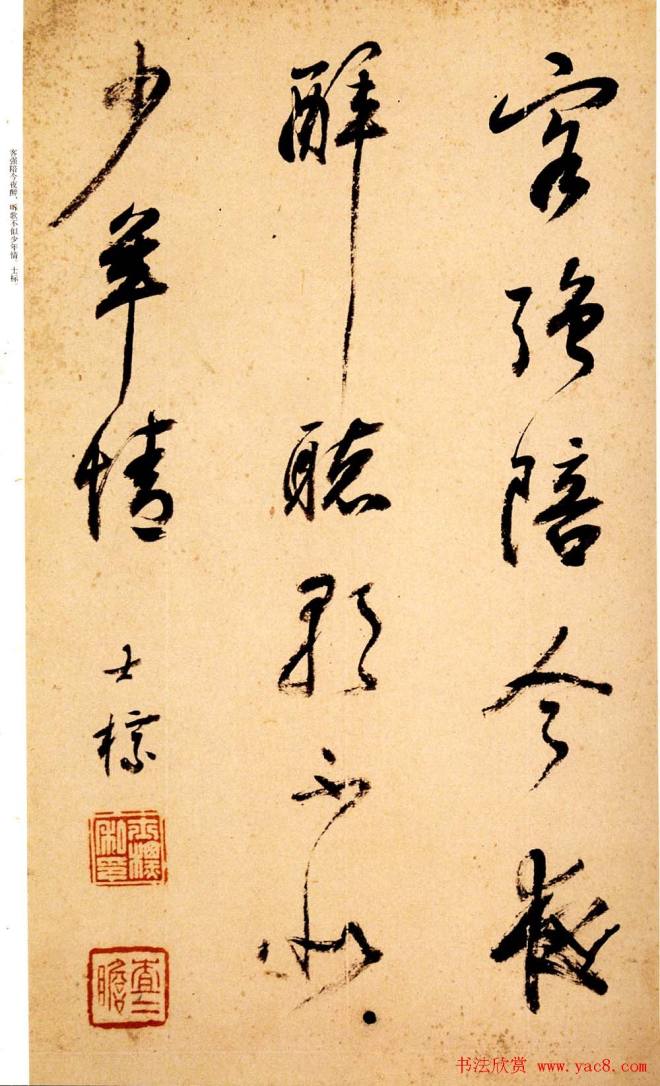 客强陪今夜
醉聽歌不似
少年情
士標
士標私印
查二瞻
客强陪今夜醉，听歌不似少年情。士标。
书法欣赏 www.yac8.com